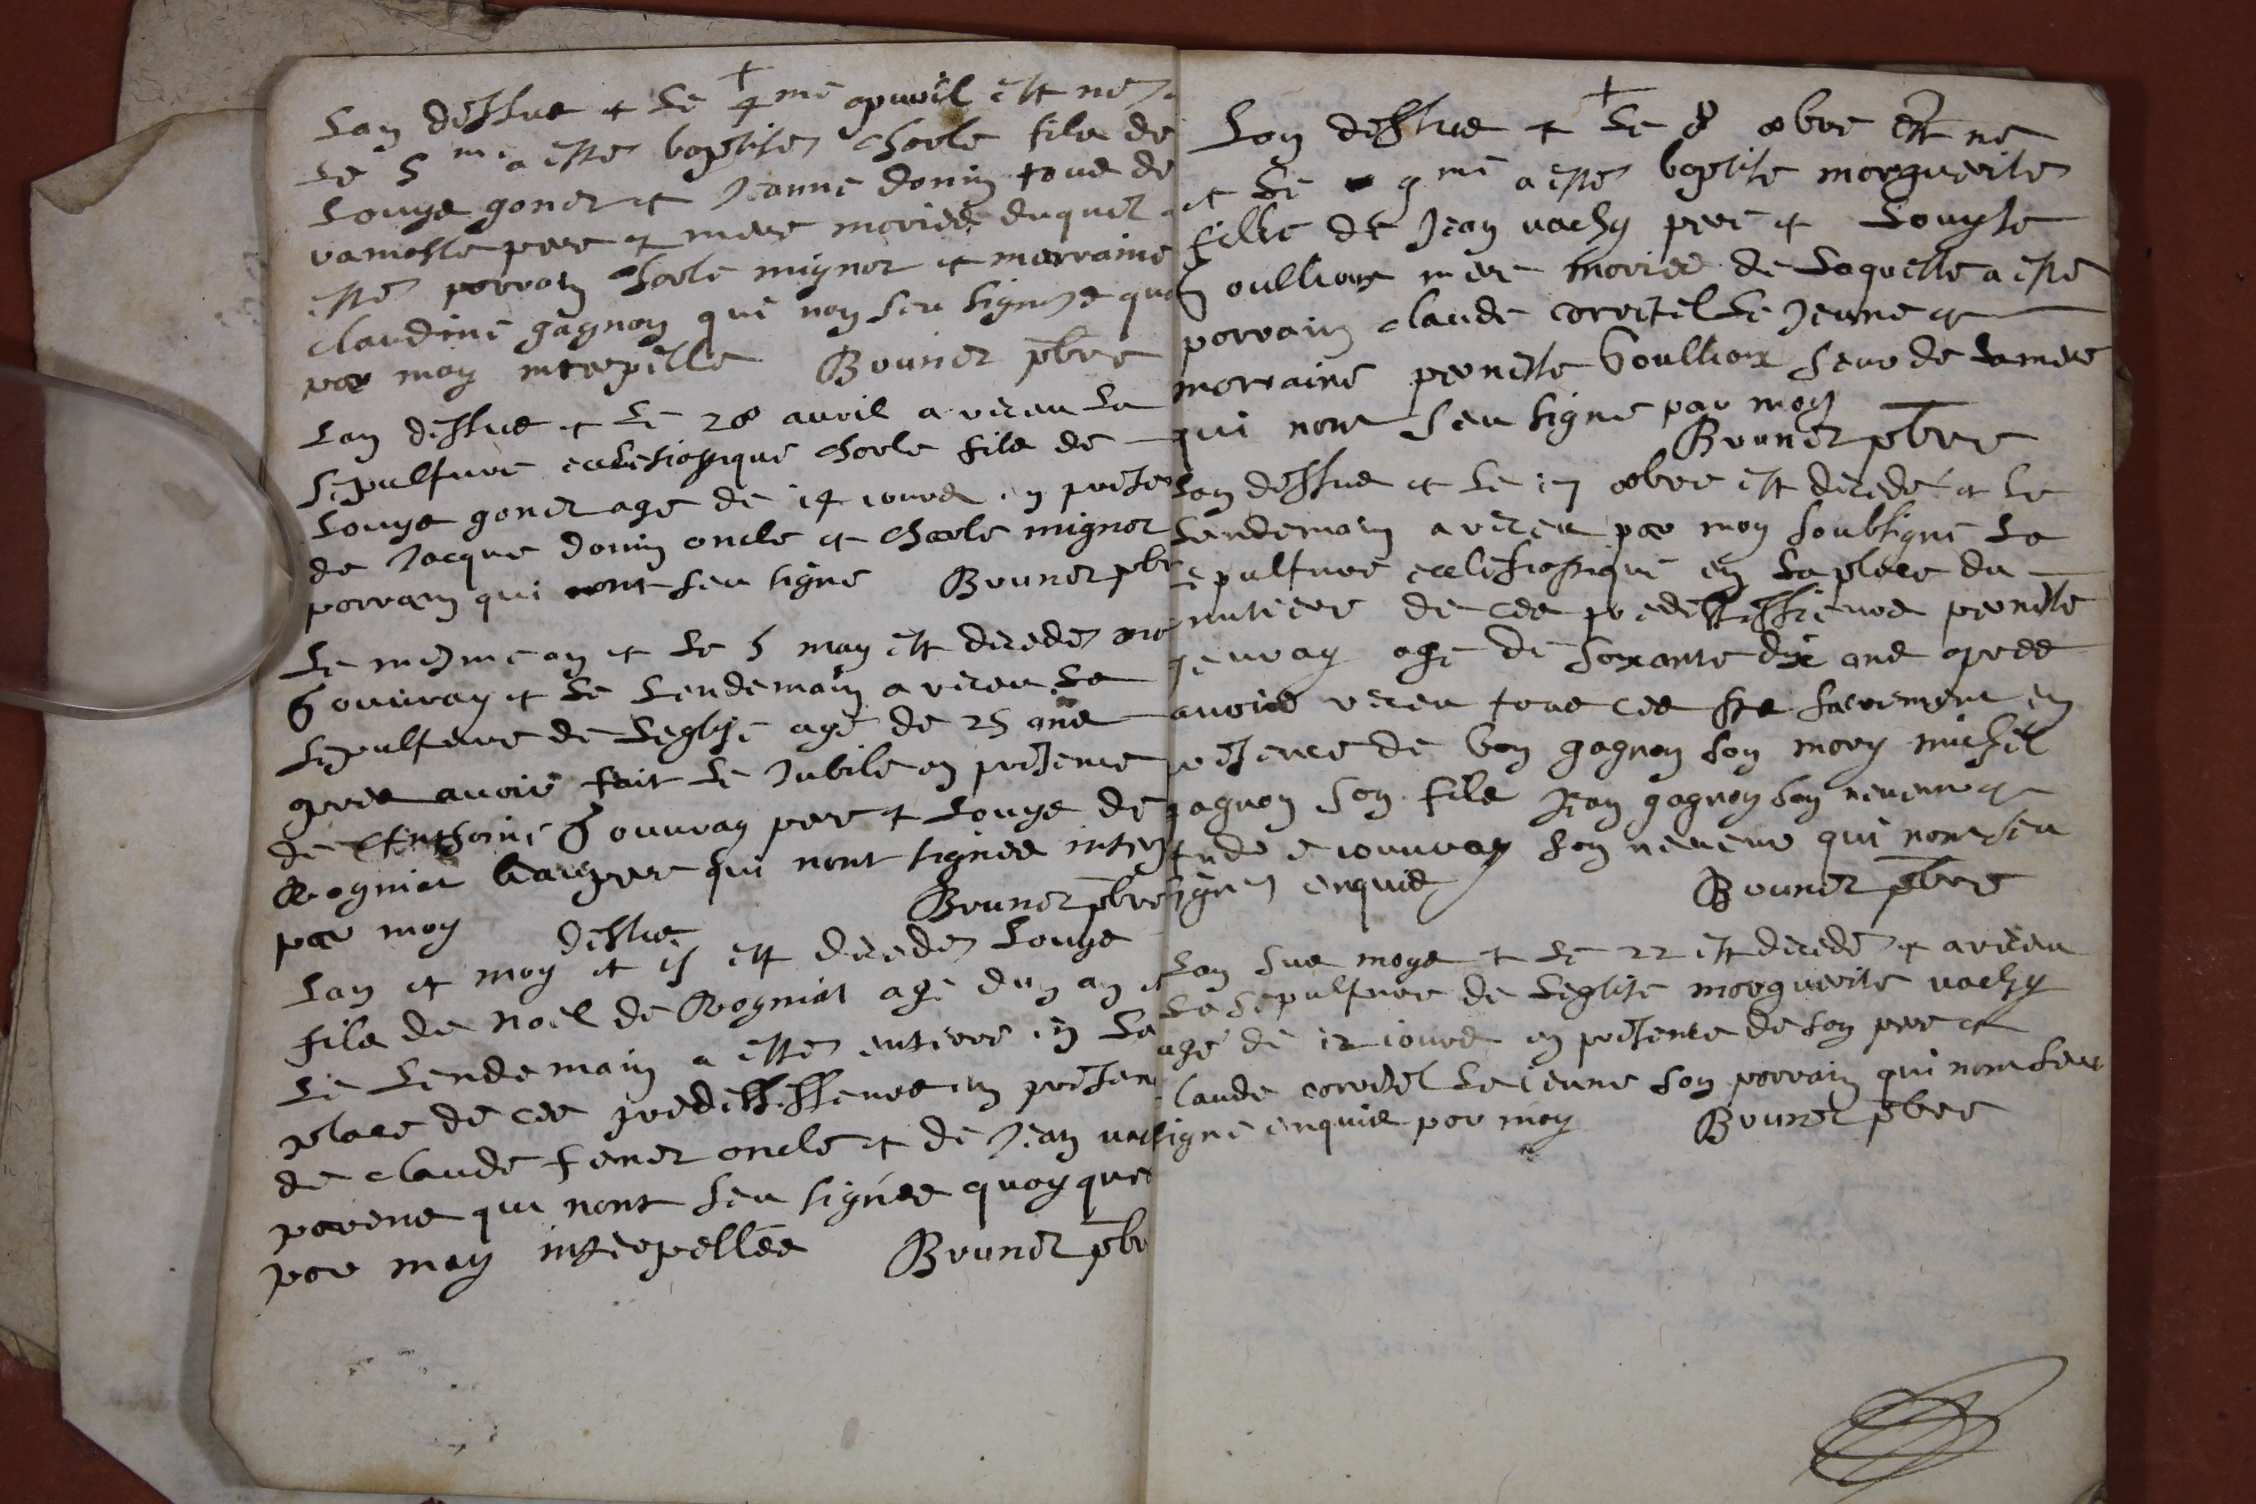 Lan dessus et Le 4 me apuvril est nez
Le 5 me a esté baptisez Charle fils de
Louys gonet et Jeanne donin tous de
pere et mere mariés duquel a
esté parrain Charle mignot et marraine
claudine gagnon qui non seu signer quo
par moy interpelle Brunet pbre
Lan dessus et Le 28 avril a receu La
sepulture eclesiastique Charle fils de
Louys gonet age de 14 jours en prese
de Jacque donin oncle et Charle mignot
parrain qui nont seu signe Brunet pbr
Le mesme an et Le 6 may est decedez
Gouvray et Le Lendemain a receu La
sepulture de Leglise agé de 25 ans
apres avoir fait Le Jubile en presence
de Enthoine Gouvray pere et Louys de
Rogniat qui nont signés
par moy Brunet pbre
dessus
Lan et moy et est decedez Louys
fils de Noel de Rogniat agé dun an et
Le Lendemain a esté enterre en La
place de ces predessesseurs en presen
de claude fenet oncle et de Jean vach
parens qui nont seu signés quoy que
par moy interpellés Brunet pbr
Lan dessus et Le 8 obre Est ne
et Le 9 me a esté baptise marguerite
fille de Jean vachy pere et Louyse
Goullioux mere mariés de Laquelle a esté
parrain claude corretel Le Jeune et
marraine pernette Goullioux seur de La mere
qui nont seu signe par moy
Brunet pbre
Lan dessus et Le 17 obre est decedé et Le
Lendemain a receu par moy soubsigné La
sepulture eclesiastique en La place du
de ces predessessieurs pernete
Jeuvray agé de soixante dix ans apres
avoir receu tous ces sts sacrement en
presence de ben gagnon son mary michel
gagnon son fils Jean gagnon son neveu et
Jouvray son neveue qui nont seu
signez enquis Brunet pbre
Lan sus moys et Le 22 est decedé et a receu
La sepulture de Leglise marguerite vachy
agé de 12 jours en presence de son pere et
claude corretel Le jeune son parrain qui nont seu
signe enquis par moy Brunet pbre